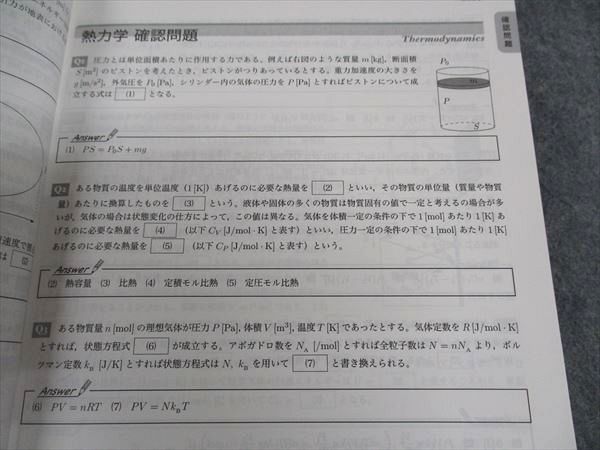 熱力学 確認問題
Thermodynamics
確認問題
Q1 圧力とは単位面積あたりに作用する力である。例えば右図のような質量 m [kg]、断面積
S [m²] のピストンを考えたとき、ピストンがつりあっているとする。重力加速度の大きさを
g [m/s²]、外気圧を P₀ [Pa]、シリンダー内の気体の圧力を P [Pa] とすればピストンについて成
立する式は (1) となる。
P₀
m
P
S
Answer
(1) PS = P₀S + mg
Q2 ある物質の温度を単位温度（1 [K]）あげるのに必要な熱量を (2) といい、その物質の単位量（質量や物質
量）あたりに換算したものを (3) という。液体や固体の多くの物質は物質固有の値で一定と考えるの場合が多
いが、気体の場合は状態変化の仕方によって、この値は異なる。気体を体積一定の条件の下で 1 [mol] あたり 1 [K] あ
げるのに必要な熱量を (4) （以下 C_V [J/mol·K] と表す）といい、圧力一定の条件の下で 1 [mol] あたり 1 [K]
あげるのに必要な熱量を (5) （以下 C_P [J/mol·K] と表す）という。
Answer
(2) 熱容量 (3) 比熱 (4) 定積モル比熱 (5) 定圧モル比熱
Q3 ある物質量 n [mol] の理想気体が圧力 P [Pa], 体積 V [m³], 温度 T [K] であったとする。気体定数を R [J/mol·K]
とすれば、状態方程式 (6) が成立する。アボガドロ数を N_A [/mol] とすれば全粒子数は N = nN_A より、ボル
ツマン定数 k_B [J/K] とすれば状態方程式は N, k_B を用いて (7) と書き換えられる。
Answer
(6) PV = nRT (7) PV = Nk_BT